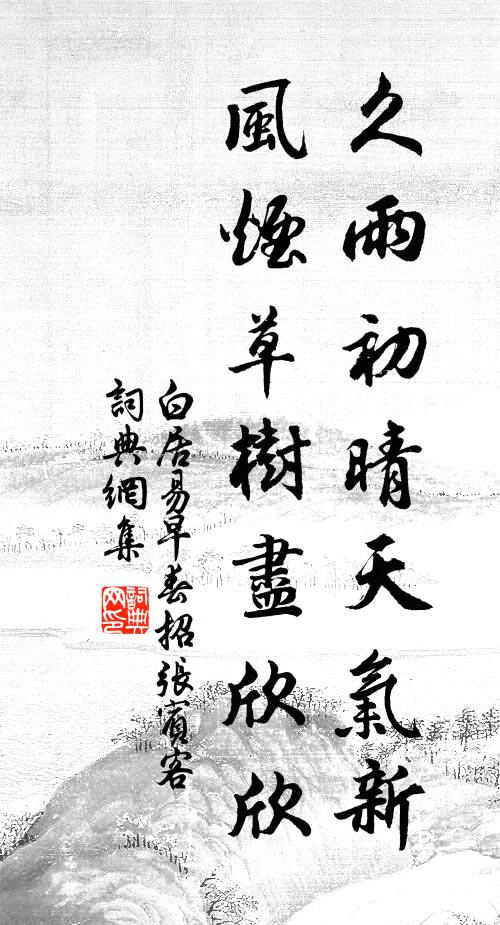 久雨初晴天氣新
風煙草樹盡欣欣
白居易早春招張賓客
詞典網集
詞典網印